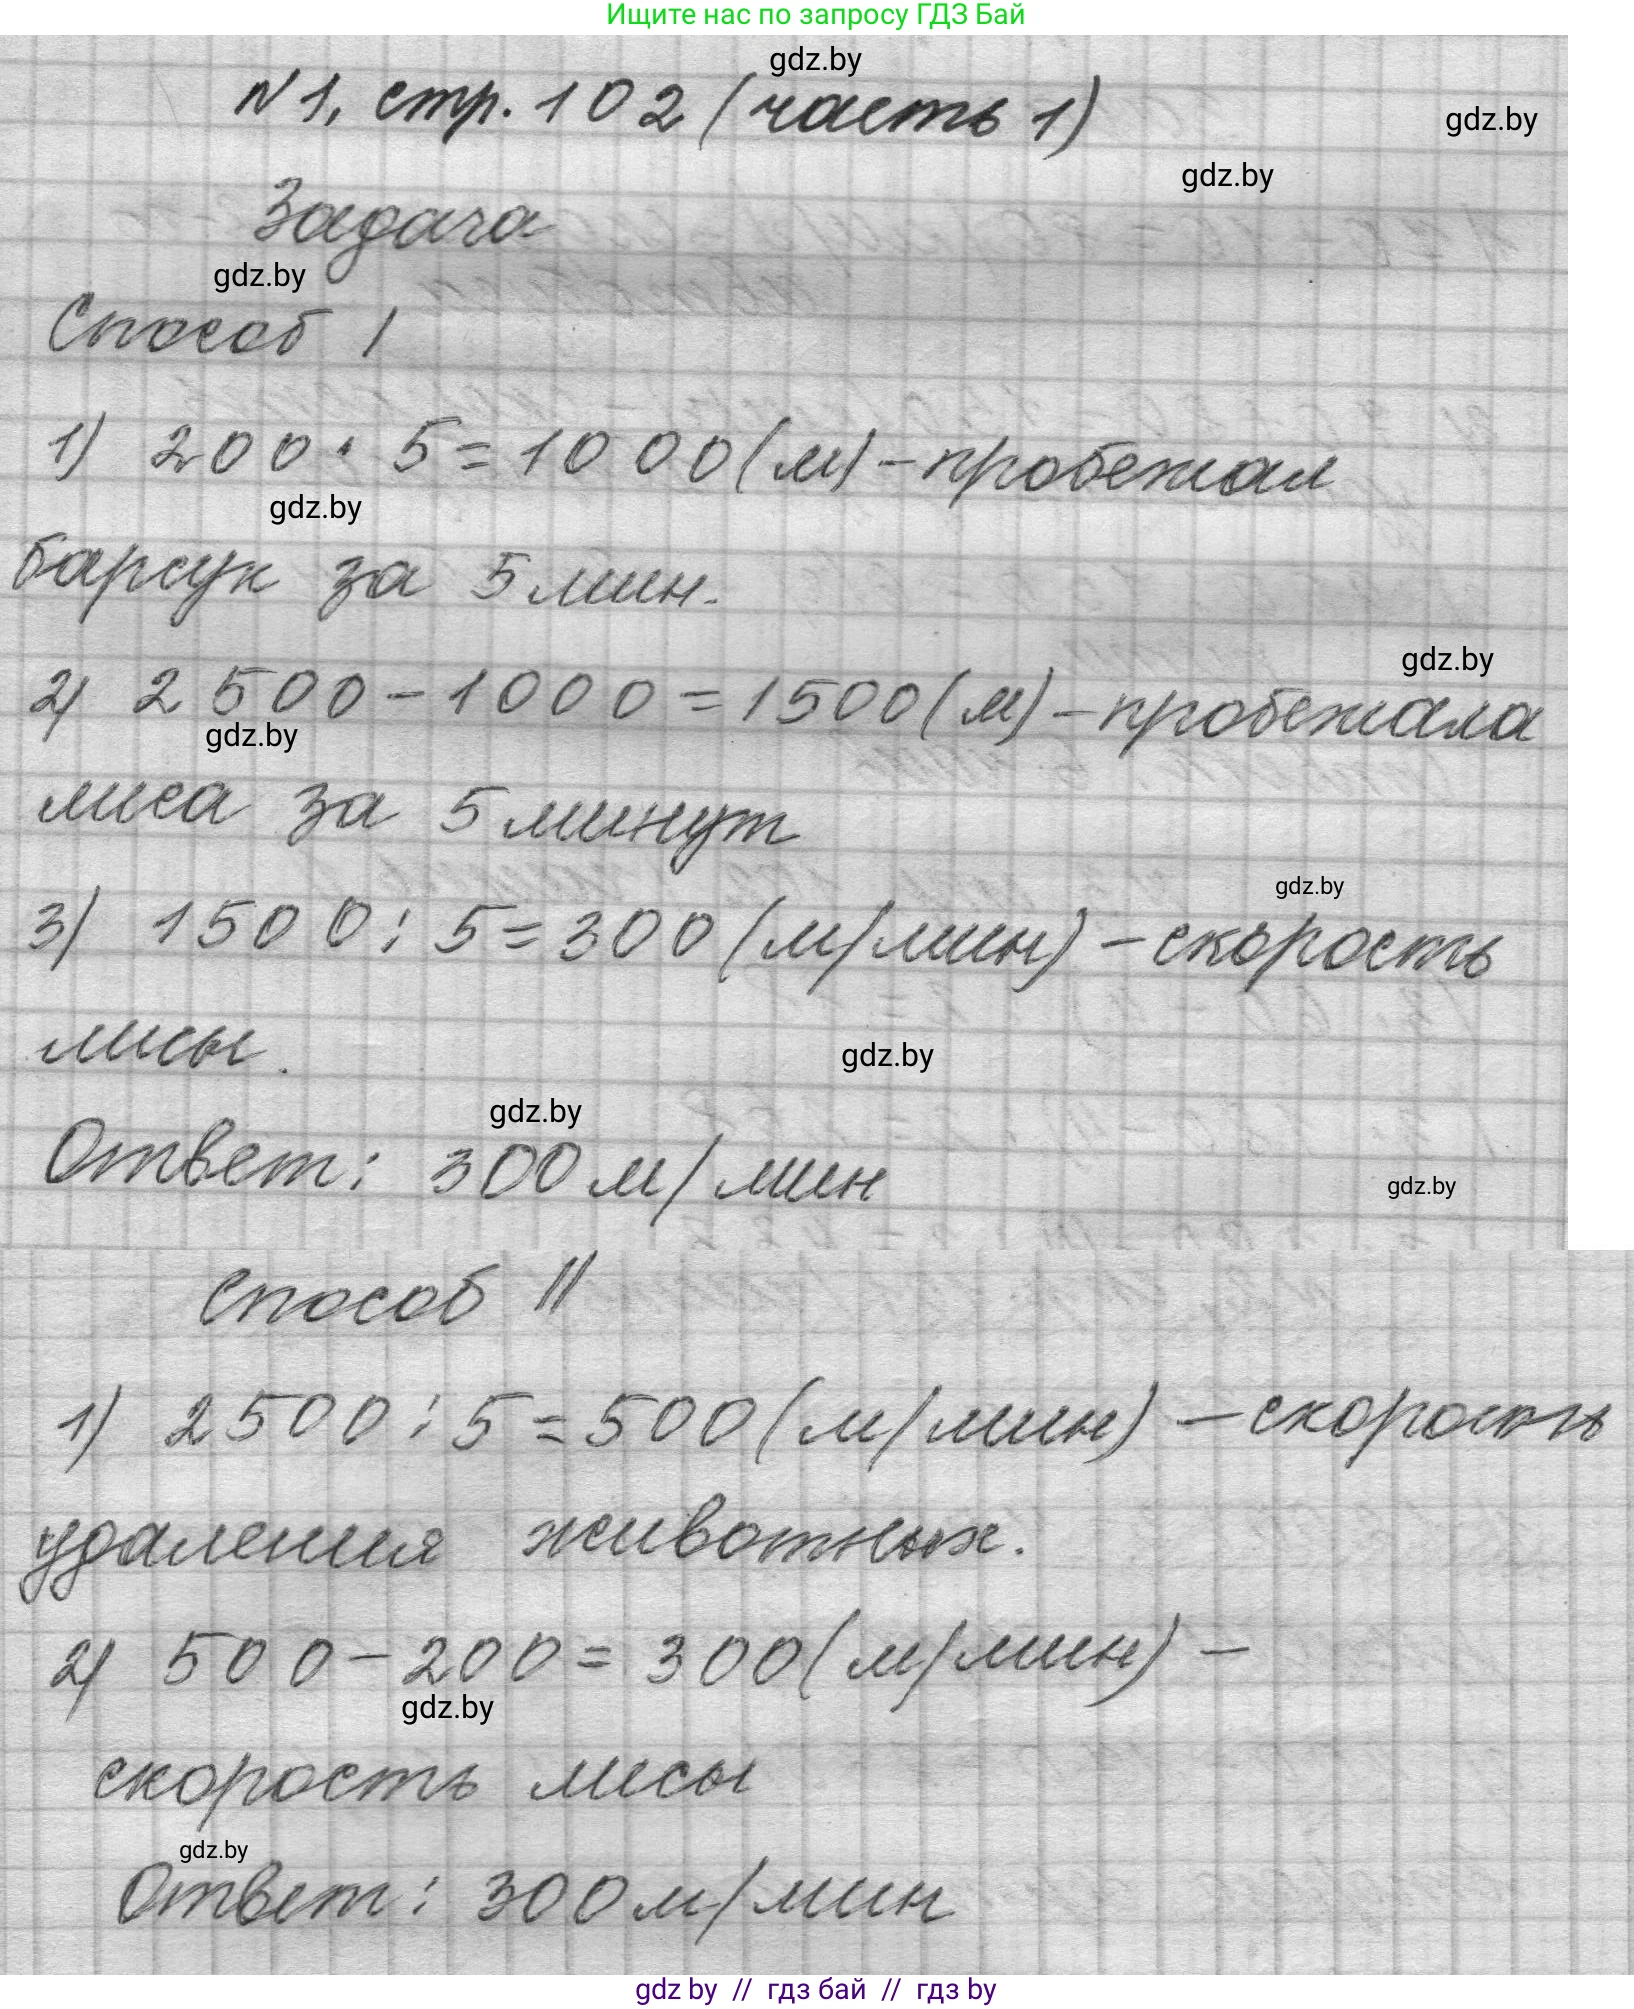 Ищите нас по запросу ГДЗ Бай
gdz.by
N1, стр. 102 (часть 1)
gdz.by
gdz.by
Задача
gdz.by
Способ I
1) 200 · 5 = 1000 (м) - пробежал
gdz.by
барсук за 5 мин.
gdz.by
2) 2500 - 1000 = 1500 (м) - пробежала
gdz.by
лиса за 5 минут
gdz.by
3) 1500 : 5 = 300 (м/мин) - скорость
лисы.
gdz.by
gdz.by
Ответ: 300 м/мин
gdz.by
Способ II
1) 2500 : 5 = 500 (м/мин) - скорость
удаления животных.
2) 500 - 200 = 300 (м/мин) -
gdz.by
скорость лисы
gdz.by
Ответ: 300 м/мин
gdz by // гдз бай // гдз by